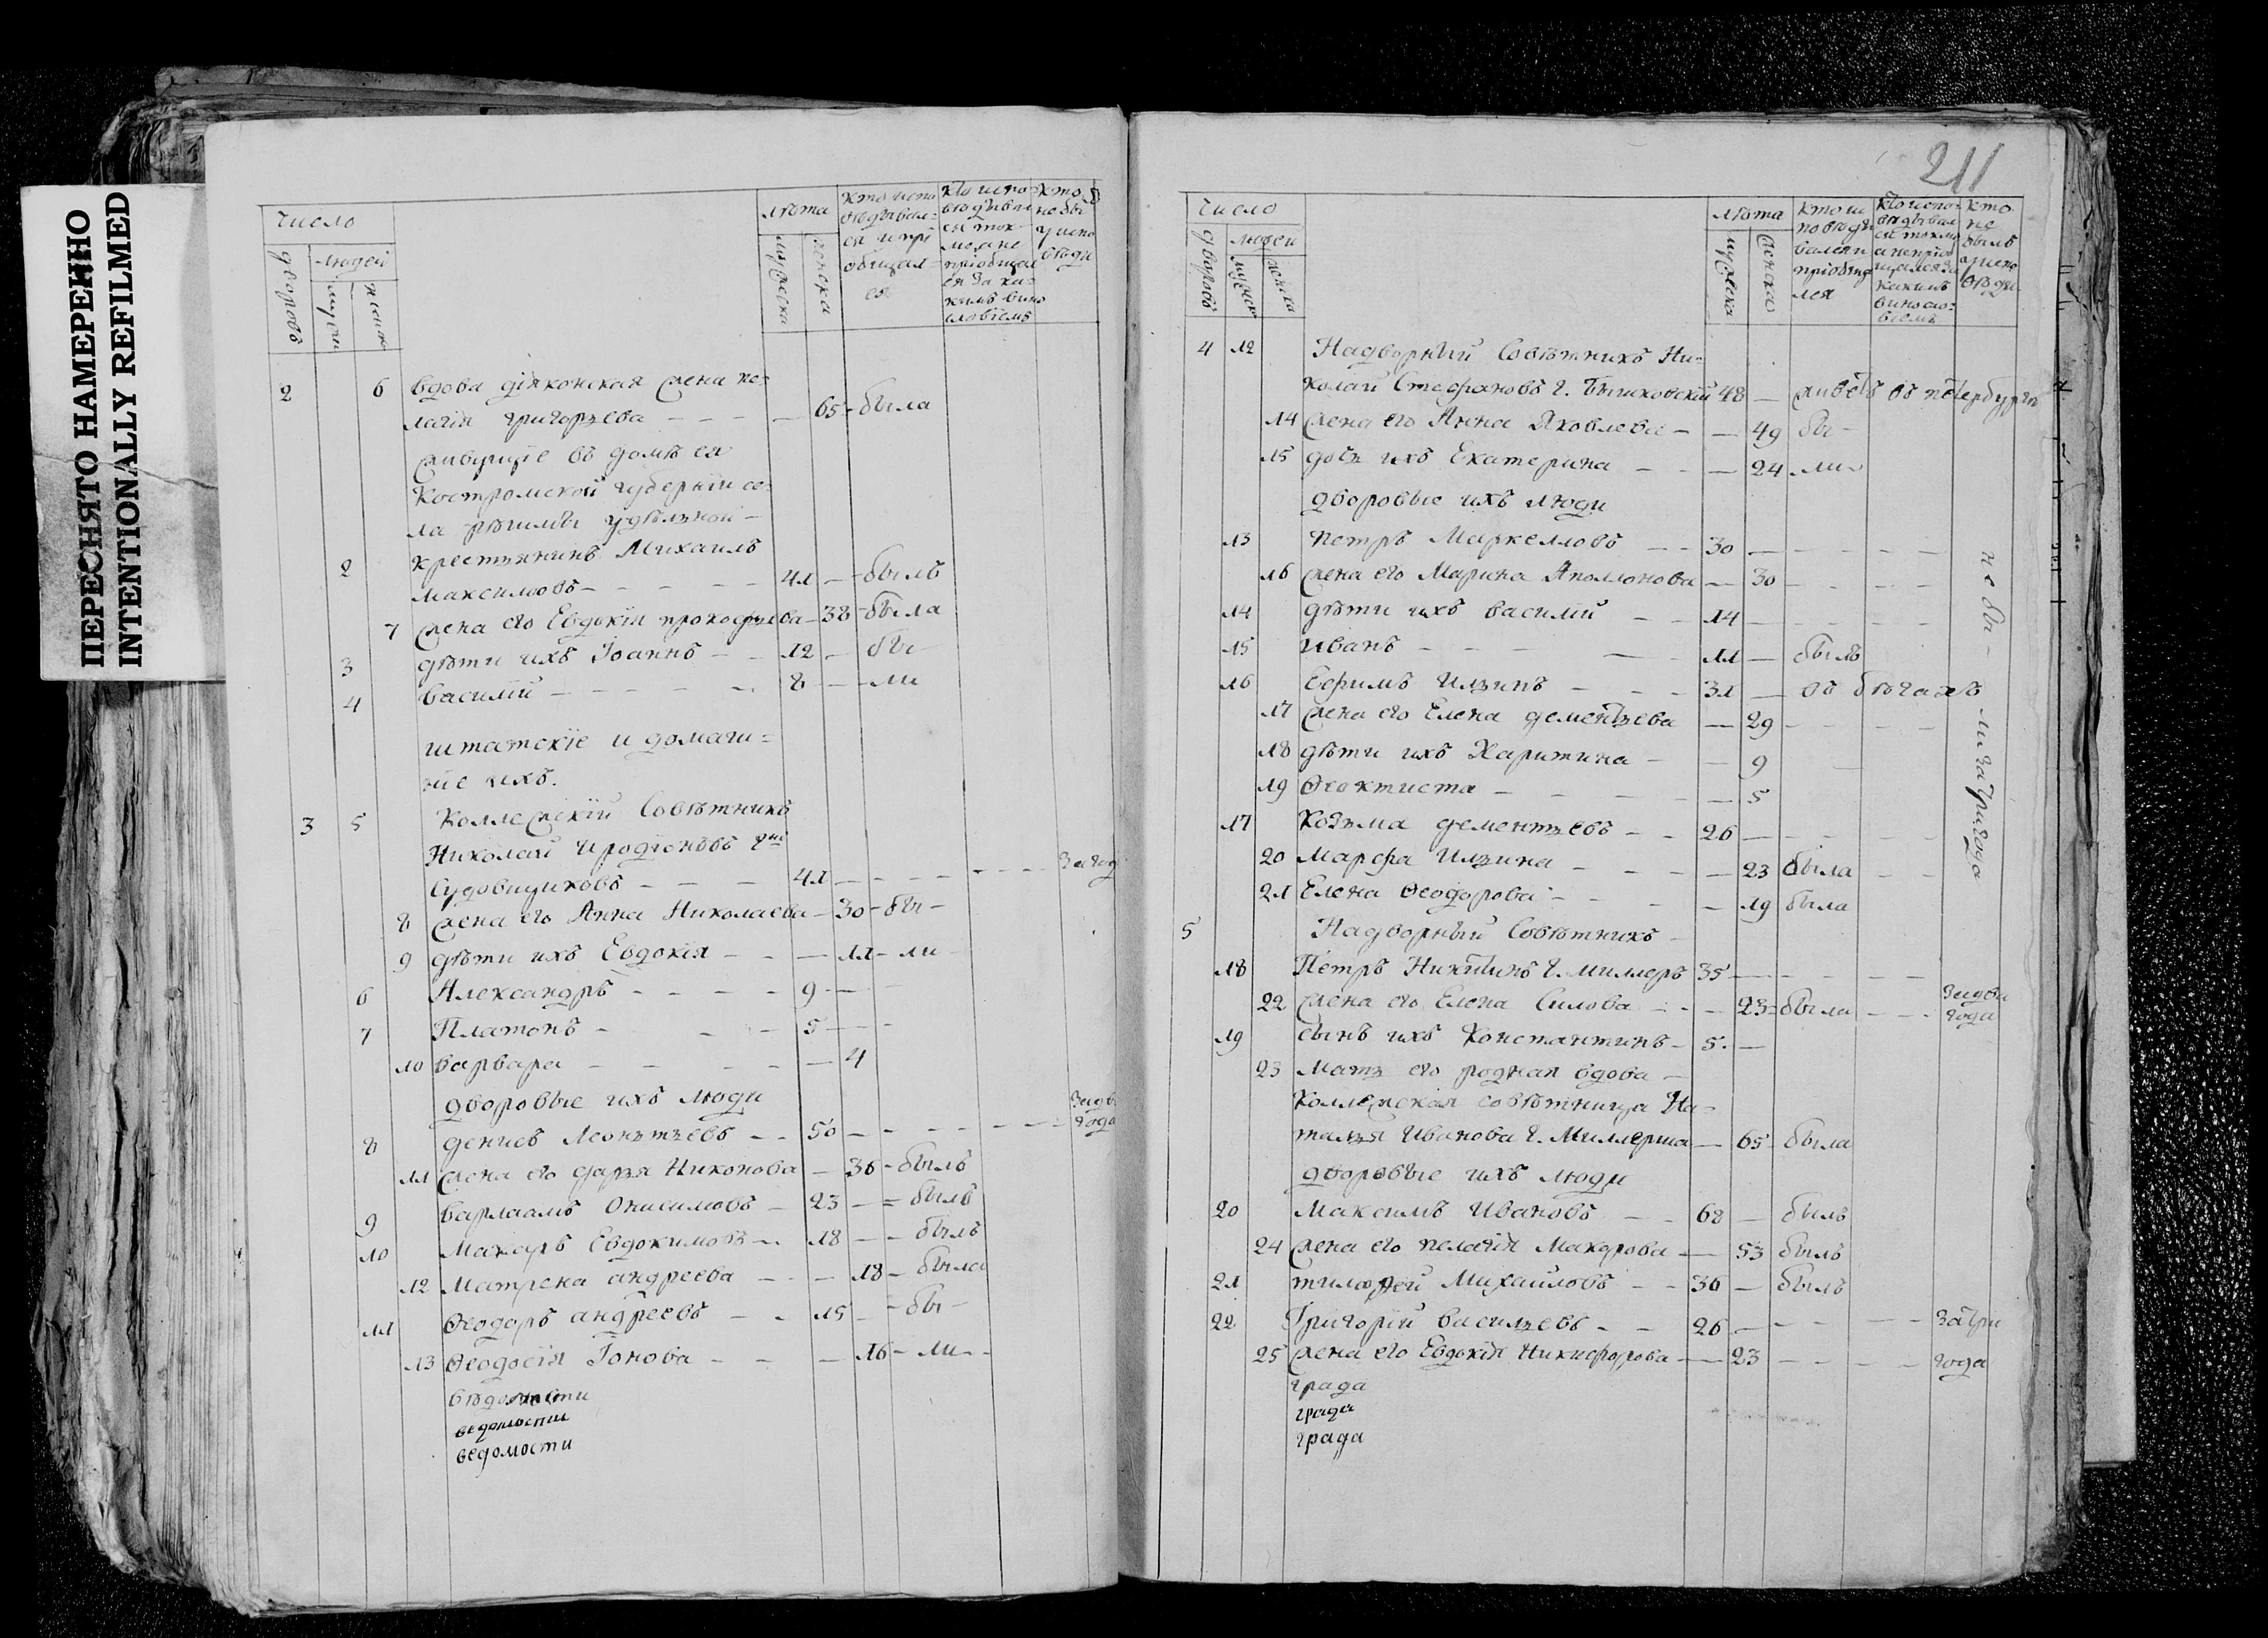 ПЕРЕСНЯТО НАМЕРЕННО
INTENTIONALLY REFILMED
число
дворовъ
людей
лѣта
мужеска
женска
кто испо
вѣдывал=
ся и прі
общал=
ся
кто испо=
вѣдывал
ся ток
мо а не
пріобщал
ся за ка=
кимъ вино
словіемъ
кто
не бы
у испо
вѣди
2 6 вдова діяконская жена пе=
лагія григорьева — — — 65 - была
живущіе въ домѣ ея
Костромской губерніи се=
ла рѣшмы удѣльной —
2 крестьянинъ Михаилъ
максимовъ — — — 41 — былъ
7 жена его Евдокія прокофьева — 38 - была
3 дѣти ихъ Іоаннъ — — 12 — бы
4 василій — — — 8 — — ли
штатскіе и домаш=
ніе ихъ.
3 5 Коллежскій Совѣтникъ
Николай Иродіоновъ гнъ
Судовщиковъ — — — 41 — — — — — за год
8 жена его Анна Николаева — 30 - бы —
9 дѣти ихъ Евдокія — — — 11 - ли —
6 Александръ — — — — 9 — —
7 Платонъ — — — 5 — — —
10 варвара — — — — — 4
дворовые ихъ люди
8 денисъ Леонтьевъ — — 50 — — — — — за два
года
11 жена его дарья Никонова — 36 - былъ
9 варлаамъ Онисимовъ — 23 — = былъ
10 Макаръ Евдокимовъ — 18 — — былъ
12 Матрена андреева — — — 18 — была
11 Ѳеодоръ андреевъ — — 15 — — бы —
13 Ѳеодосія Іонова — — — 16 — ли — —
вѣдомости
ведомости
ведомости
211
число
дворовъ
людей
мужеска
женска
лѣта
мужеска
женска
кто ис
повѣды
вался и
пріобща
лся
кто испо=
вѣдывал
ся токмо
а не пріоб
щался за
какимъ
виносло=
віемъ
кто
не
былъ
у испо
вѣди
4 12 Надворный Совѣтникъ Ни=
колай Стефановъ г. Бышковскій 48 — живетъ въ петербургѣ
14 жена его Анна Яковлева — — 49 бы —
15 дочь ихъ Екатерина — — — 24 ли —
дворовые ихъ люди
13 петръ Маркелловъ — — 30 — — — — —
16 жена его Марина Аполлонова — 30 — — — —
14 дѣти ихъ василій — — 14 — — — — —
15 иванъ — — — — 11 — былъ
16 Ефимъ Ильинъ — — — 31 — въ бѣгахъ
17 жена его Елена дементьева — 29 — — — —
18 дѣти ихъ Харитина — — 9 —
19 Ѳеоктиста — — — — — 5
17 Козьма дементьевъ — — 26 — — — — —
20 Марфа Ильина — — — — 23 была — —
21 Елена Ѳеодорова — — — — 19 была
не бы — ли за три года
5 Надворный Совѣтникъ —
18 Петръ Никитинъ г. Миллеръ 35 — — — — —
22 жена его Елена Силова — — — 23 = была — — — за два
года
19 сынъ ихъ Константинъ — 5. —
23 мать его родная вдова —
Коллежская совѣтница На=
талья Иванова г. Миллерша — 65 была
дворовые ихъ люди
20 Максимъ Ивановъ — — 68 — былъ
24 жена его пелагія Макарова — — 53 былъ
21 тимофей Михайловъ — — 36 — былъ
22 Григорій васильевъ — — 26 — — — — — за три
25 жена его Евдокія Никифорова — — 23 — — — — года
града
града
града